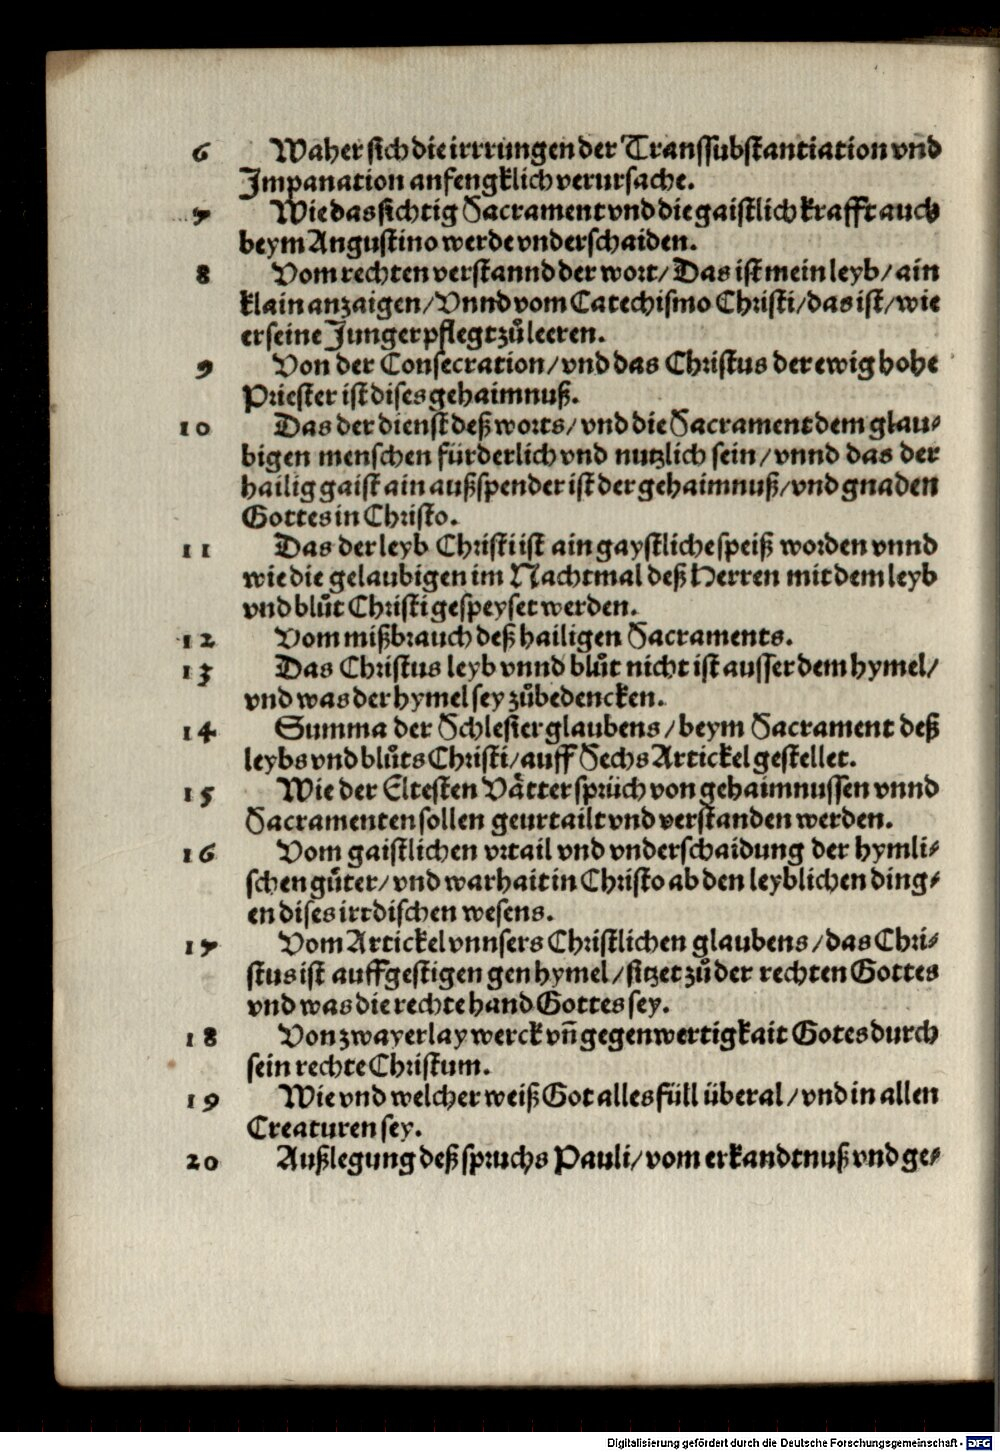 6 Waher sich die irrrungen der Transsubstantiation vnd
Impanation anfengklich verursache.
7 Wie das sichtig Sacrament vnd die gaistlich krafft auch
beym Angustino werde vnderschaiden.
8 Vom rechten verstannd der wort/ Das ist mein leyb/ ain
klain anzaigen/ Vnnd vom Catechismo Christi/ das ist/ wie
er seine Junger pflegt zuͦ leeren.
9 Von der Consecration/ vnd das Christus der ewig hohe
Priester ist dises gehaimnuß.
10 Das der dienst deß worts/ vnd die Sacrament dem glau⸗
bigen menschen fürderlich vnd nutzlich sein/ vnnd das der
hailig gaist ain außspender ist der gehaimnuß/ vnd gnaden
Gottes in Christo.
11 Das der leyb Christi ist ain gaystliche speiß worden vnnd
wie die gelaubigen im Nachtmal deß Herren mit dem leyb
vnd bluͦt Christi gespeyset werden.
12 Vom mißbrauch deß hailigen Sacraments.
13 Das Christus leyb vnnd bluͦt nicht ist ausser dem hymel/
vnd was der hymel sey zuͦbedencken.
14 Summa der Schlesier glaubens/ beym Sacrament deß
leybs vnd bluͦts Christi/ auff Sechs Artickel gestellet.
15 Wie der Eltesten Vaͤtter sprüch von gehaimnussen vnnd
Sacramenten sollen geurtailt vnd verstanden werden.
16 Vom gaistlichen vrtail vnd vnderschaidung der hymli⸗
schen guͤter/ vnd warhait in Christo ab den leyblichen ding⸗
en dises irrdischen wesens.
17 Vom Artickel vnnsers Christlichen glaubens/ das Chri⸗
stus ist auffgestigen gen hymel/ sitzet zuͦ der rechten Gottes
vnd was die rechte hand Gottes sey.
18 Von zwayerlay werck vñ gegenwertigkait Gotes durch
sein rechte Christum.
19 Wie vnd welcher weiß Got alles füll überal/ vnd in allen
Creaturen sey.
20 Außlegung deß spruchs Pauli/ vom erkandtnuß vnd ge⸗
Digitalisierung gefördert durch die Deutsche Forschungsgemeinschaft - DFG